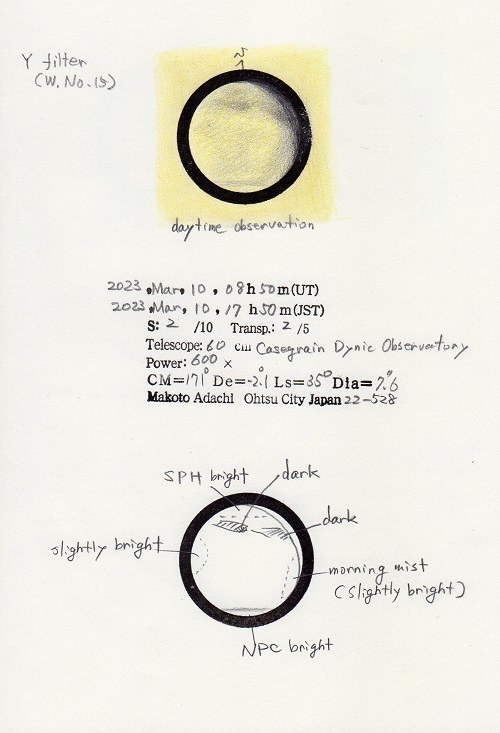 Y filter
(W. No. 15)
daytime observation
2023, Mar, 10, 08h50m(UT)
2023, Mar, 10, 17h50m(JST)
S: 2 /10 Transp.: 2 /5
Telescope: 60 cm Casegrain Dynic Observatory
Power: 600 ×
CM=171° De=-2.1° Ls=35° Dia=7.6"
Makoto Adachi Ohtsu City Japan 22-528
SPH bright
dark
dark
slightly bright
morning mist
(slightly bright)
NPC bright